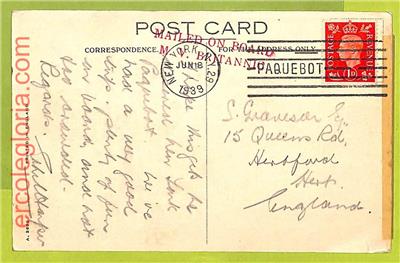 POST CARD
CORRESPONDENCE
MAILED ON BOARD
M.V. BRITANNIC
FOR ADDRESS ONLY.
NEW YORK, N.Y. 29
JUN 18
1939
PAQUEBOT
POSTAGE
REVENUE
1D
this gets its
New York
Paquebot. We've
had a very good
trip, plenty of fun
on board, and not
too crowded.
Regards.
S. Graveson Esq.
15 Queens Rd,
Hertford
Hert.
England.
ercolegloria.com